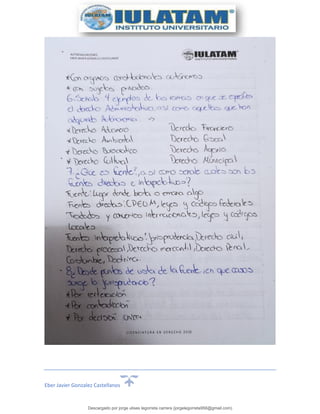 IULATAM
INSTITUTO UNIVERSITARIO
AUTOEVALUACIONES
EBER JAVIER GONZALEZ CASTELLANOS
IULATAM
*Con organos constitucionales autónomos
*Con sujetos privados.
6.-Señala 4 ejemplos de las ramas en que se especifica
el derecho Administrativo, así como aquellas que han
adquirido Autonomía. ->
*Derecho Aduanero Derecho Financiero
*Derecho Ambiental Derecho Fiscal
*Derecho Burocratico Derecho Agrario
*Derecho Cultural Derecho Municipal
7.-¿Que es fuente?, así como señale cuales son las
fuentes directas e interpretativas?
Fuente: Lugar donde brota o emana algo.
Fuentes directas: CPEUM, leyes y codigos federales
Tratados y convenios internacionales, leyes y codigos
locales
Fuentes interpretativas: Jurisprudencia, Derecho civil,
Derecho procesal, Derecho mercantil, Derecho Penal,
Costumbre, Doctrina.
8.-Desde puntos de vista de la fuente ¿en que casos
surge la Jurisprudencia?
*Por reiteración
*Por contradicción
*Por decisión
LICENCIATURA EN DERECHO
Eber Javier Gonzalez Castellanos
Descargado por jorge ulises lagomela carrera (jorgelagomela999@gmail.com)